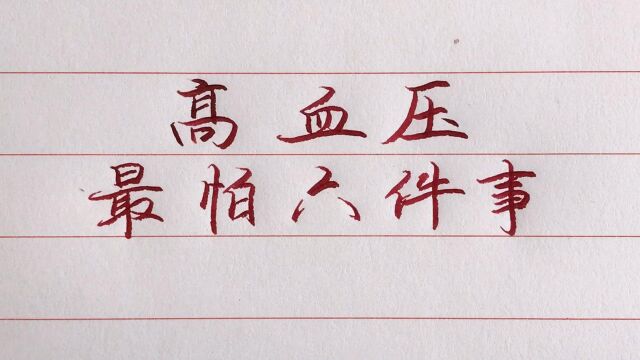 高血压
最怕六件事